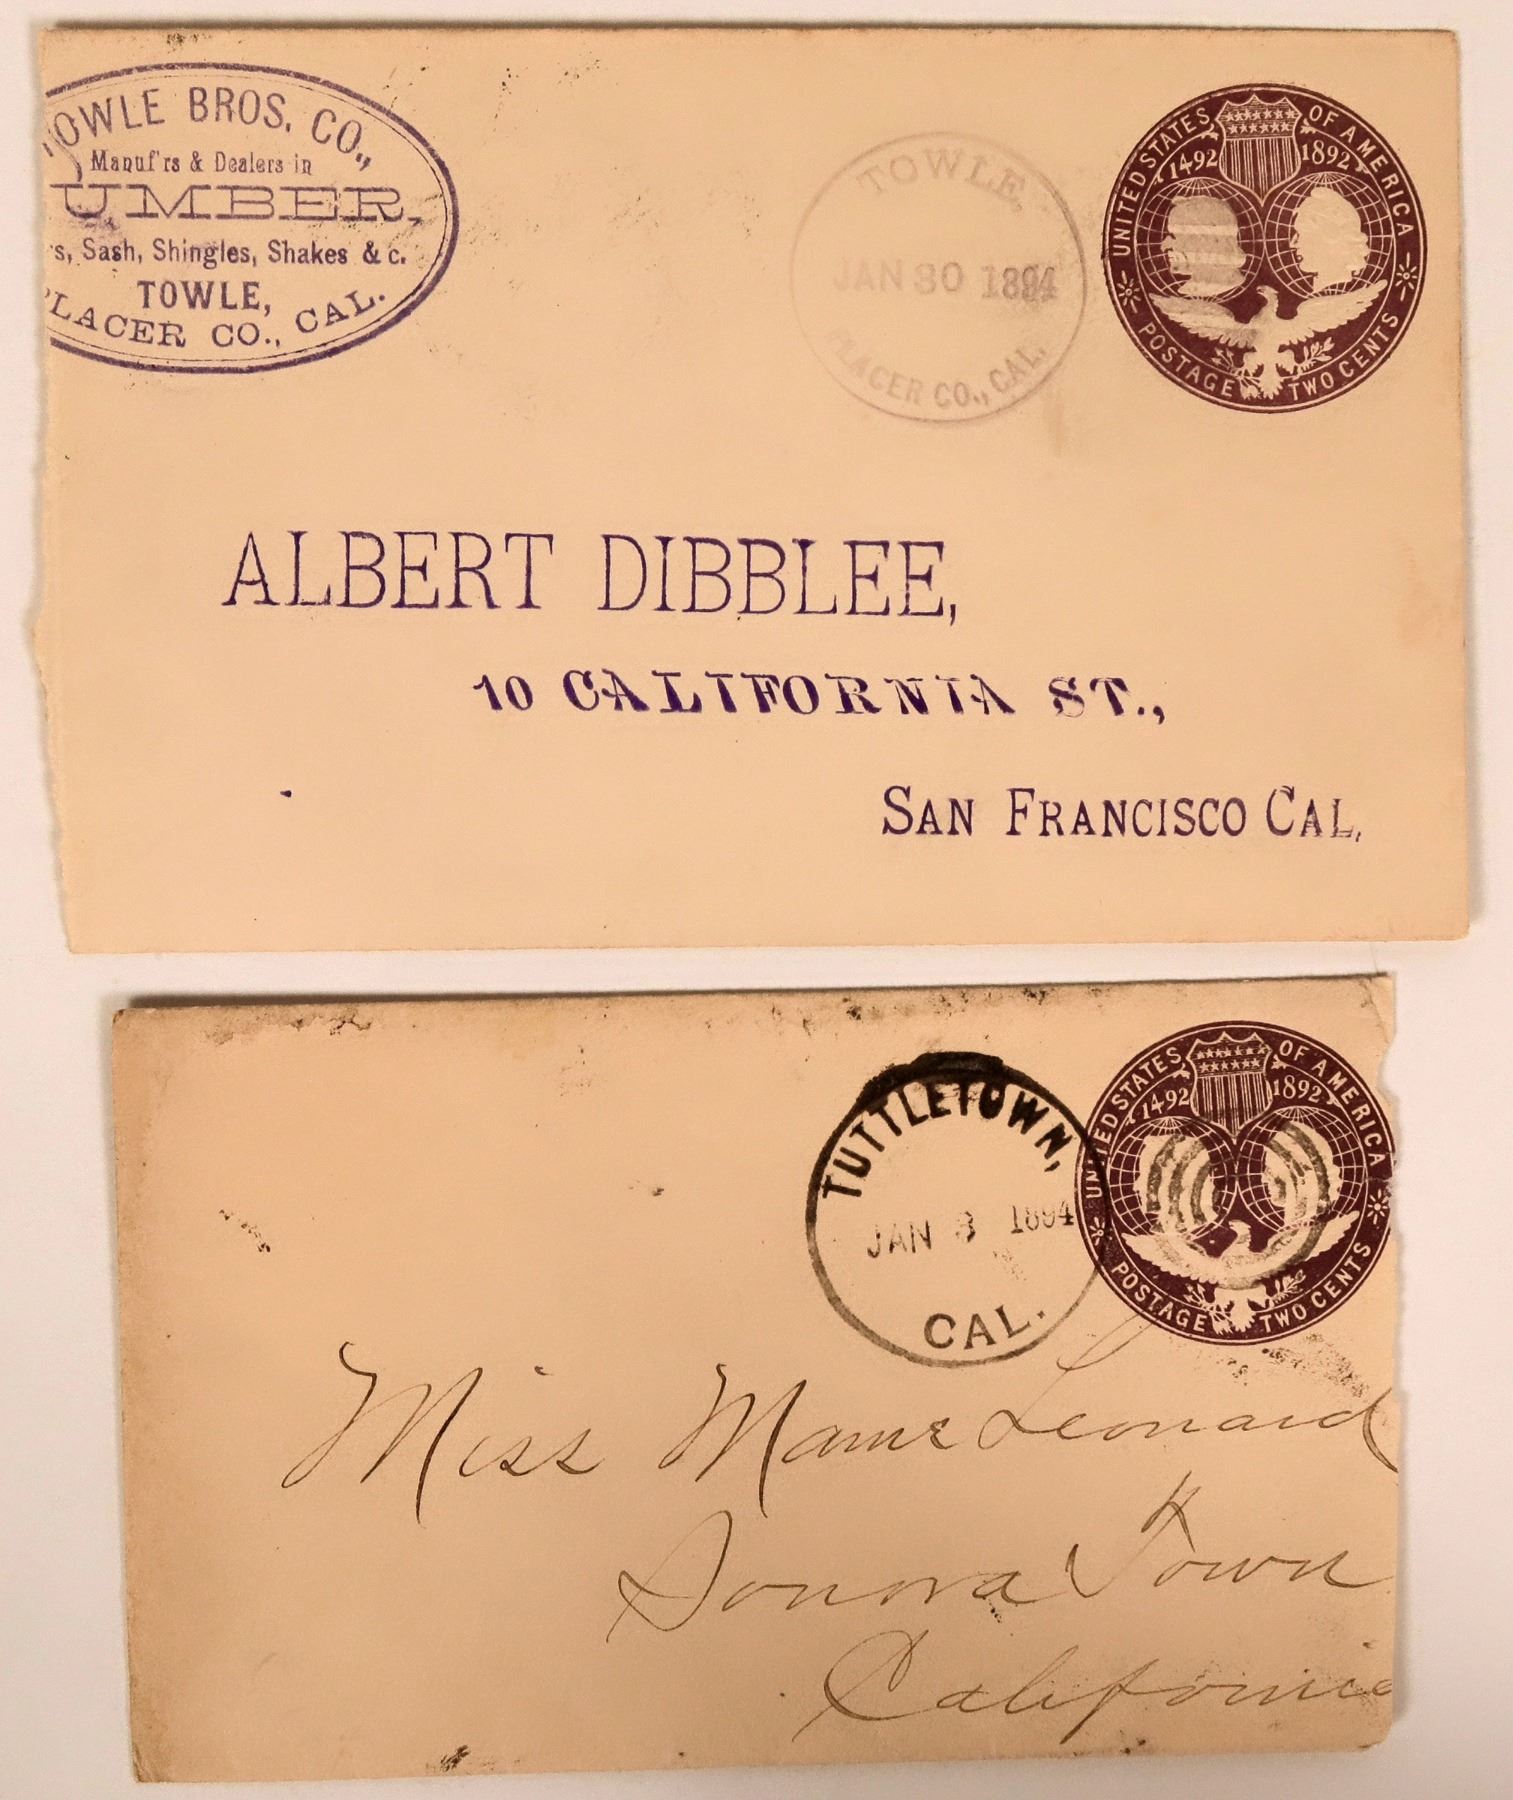 OWLE BROS. CO.,
Manuf'rs & Dealers in
UMBER,
s, Sash, Shingles, Shakes & c.
TOWLE,
PLACER CO., CAL.
TOWLE,
JAN 30 1894
PLACER CO., CAL.
UNITED STATES OF AMERICA
1492 1892
POSTAGE TWO CENTS
ALBERT DIBBLEE,
10 CALIFORNIA ST.,
SAN FRANCISCO CAL,
TUTTLETOWN,
JAN 8 1894
CAL.
UNITED STATES OF AMERICA
1492 1892
POSTAGE TWO CENTS
Miss Mame Leonard
Sonora Town
California